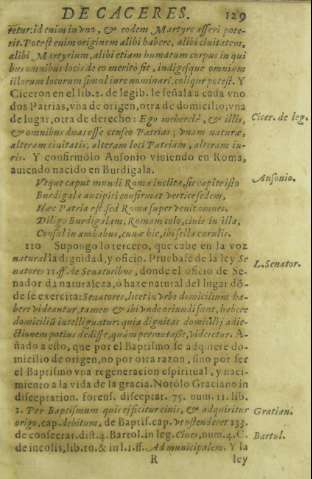 DE CACERES. 129
retur.id enim in vno, & eodem Martyre asseri pote-
rit. Potest enim originem alibi habere, alibi ciuitatem,
alibi Martyrium, alibi etiam humatum corpus in qui
bus omnibus locis de eo merito sit, indigesque omnium
illorum locorum simul iure nominari, colique potest. Y
Ciceron en el lib.2. de legib. le señala a cada vno
dos Patrias, vna de origen, otra de domicilio, vna
de lugar, otra de derecho: Ego mehercle, & illis,
Cicer. de leg.
& omnibus duas esse censeo Patrias; vnam naturæ,
alteram ciuitatis, alteram loci Patriam, alteram iu-
ris. Y confirmólo Ausonio viuiendo en Roma,
auiendo nacido en Burdigala.
Ausonio.
Vtque caput mundi Romæ inclita, sic capite isto
Burdigala ancipiti confirmat vertice sedem,
Hæc Patria est, sed Roma super venit omnes.
Diligo Burdigalam, Romam colo, ciuis in illa,
Consul in ambabus, cunæ hic, ibi sella curulis.
110 Supongo lo tercero, que cabe en la voz
natural la dignidad, y oficio. Prueuase de la ley Se
natores 11.ff. de Senatoribus, donde el oficio de Se-
L. Senator.
nador da naturaleza, o haze natural del lugar dõ-
de se exercita: Senatores, licet in vrbe domicilium ha-
bere videantur, tamen & ibi vnde oriundi sunt, habere
domicilium intelliguntur: quia dignitas domicilij adie-
ctionem potius dedisse, quàm permutasse, videtur. A-
ñado a esto, que por el Baptismo se adquiere do-
micilio de origen, no por otra razon, sino por ser
el Baptismo vna regeneracion espiritual, y naci-
miento a la vida de la gracia. Notólo Graciano in
disceptation. forens. disceptat. 75. num. 11. lib.
2. Per Baptismum quis efficitur ciuis, & adquiritur
Gratian.
origo, cap. debitum, de Baptis. cap. vt ostenderet 133.
de consecrat. dist. 4. Bartol. in leg. Ciues, num. 4. C.
Bartul.
de incolis, lib. 10. & in l. 1. ff. Ad municipalem. Y la
R ley